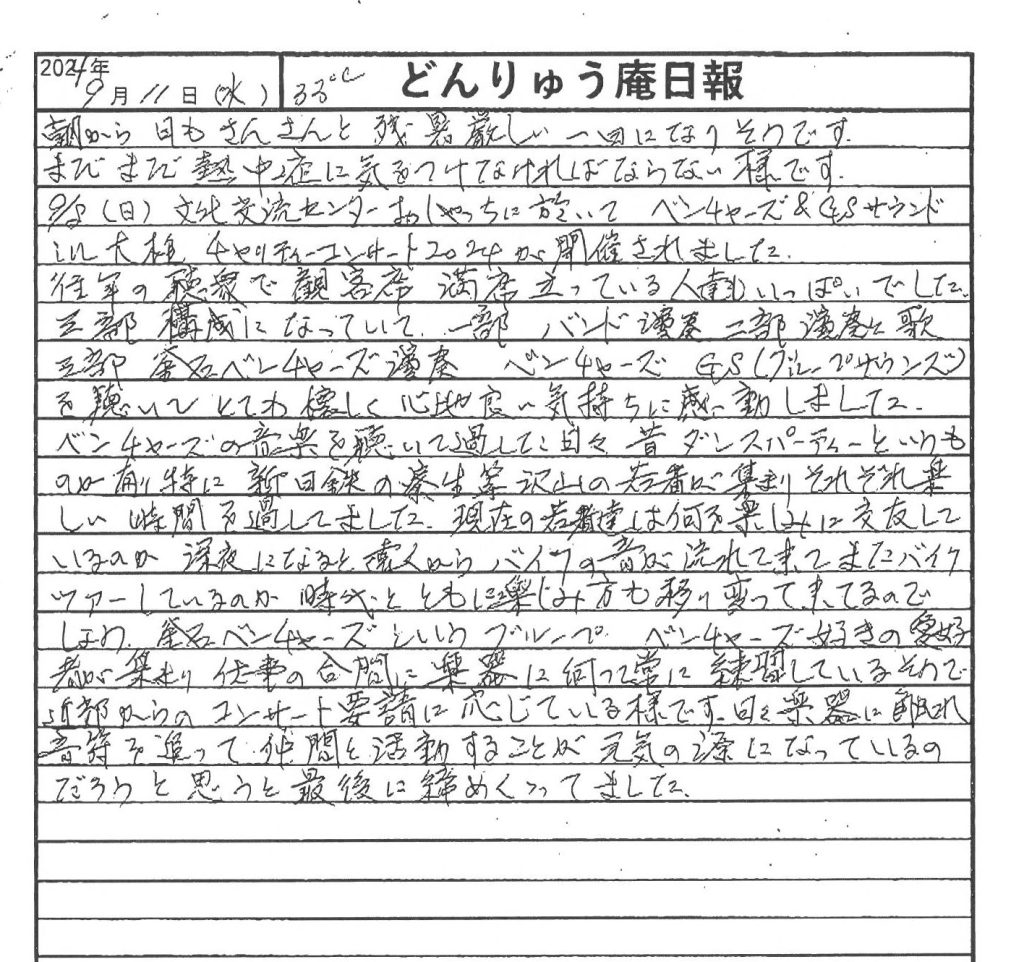 2024年
9月11日(水) 33℃ どんりゅう庵日報
朝から日もさんさんと残暑厳しい一日になりそうです.
まだまだ熱中症に気をつけなければならない様です.
9/8(日) 文化交流センターおしゃっちに於いて ベンチャーズ&GSサウンド
in 大槌 チャリティーコンサート2024が開催されました.
往年の聴衆で観客席 満席 立っている人達もいっぱいでした.
三部構成になっていて. 一部 バンド演奏 二部 演奏と歌
三部 釜石ベンチャーズ演奏 ベンチャーズ GS(グループサウンズ)
を聴いて とても懐しく心地良い気持ちに感動しました.
ベンチャーズの音楽を聴いて過した日々 昔ダンスパーティーというも
のが有り 特に新日鉄の寮生等沢山の若者が集まりそれぞれ楽
しい時間を過してました. 現在の若者達は何を楽しみに交友して
いるのか 深夜になると遠くからバイクの音が流れて来てまたバイク
ツアーしているのか 時代とともに楽しみ方も移り変って来てるので
しょう. 釜石ベンチャーズというグループ ベンチャーズ好きの愛好
者が集まり仕事の合間に楽器に向って常に練習しているそうで
各部からのコンサート要請に応じている様です. 日々楽器に触れ
音符を追って仲間と活動することが元気の源になっているの
だろうと思うと最後に締めくくってました.